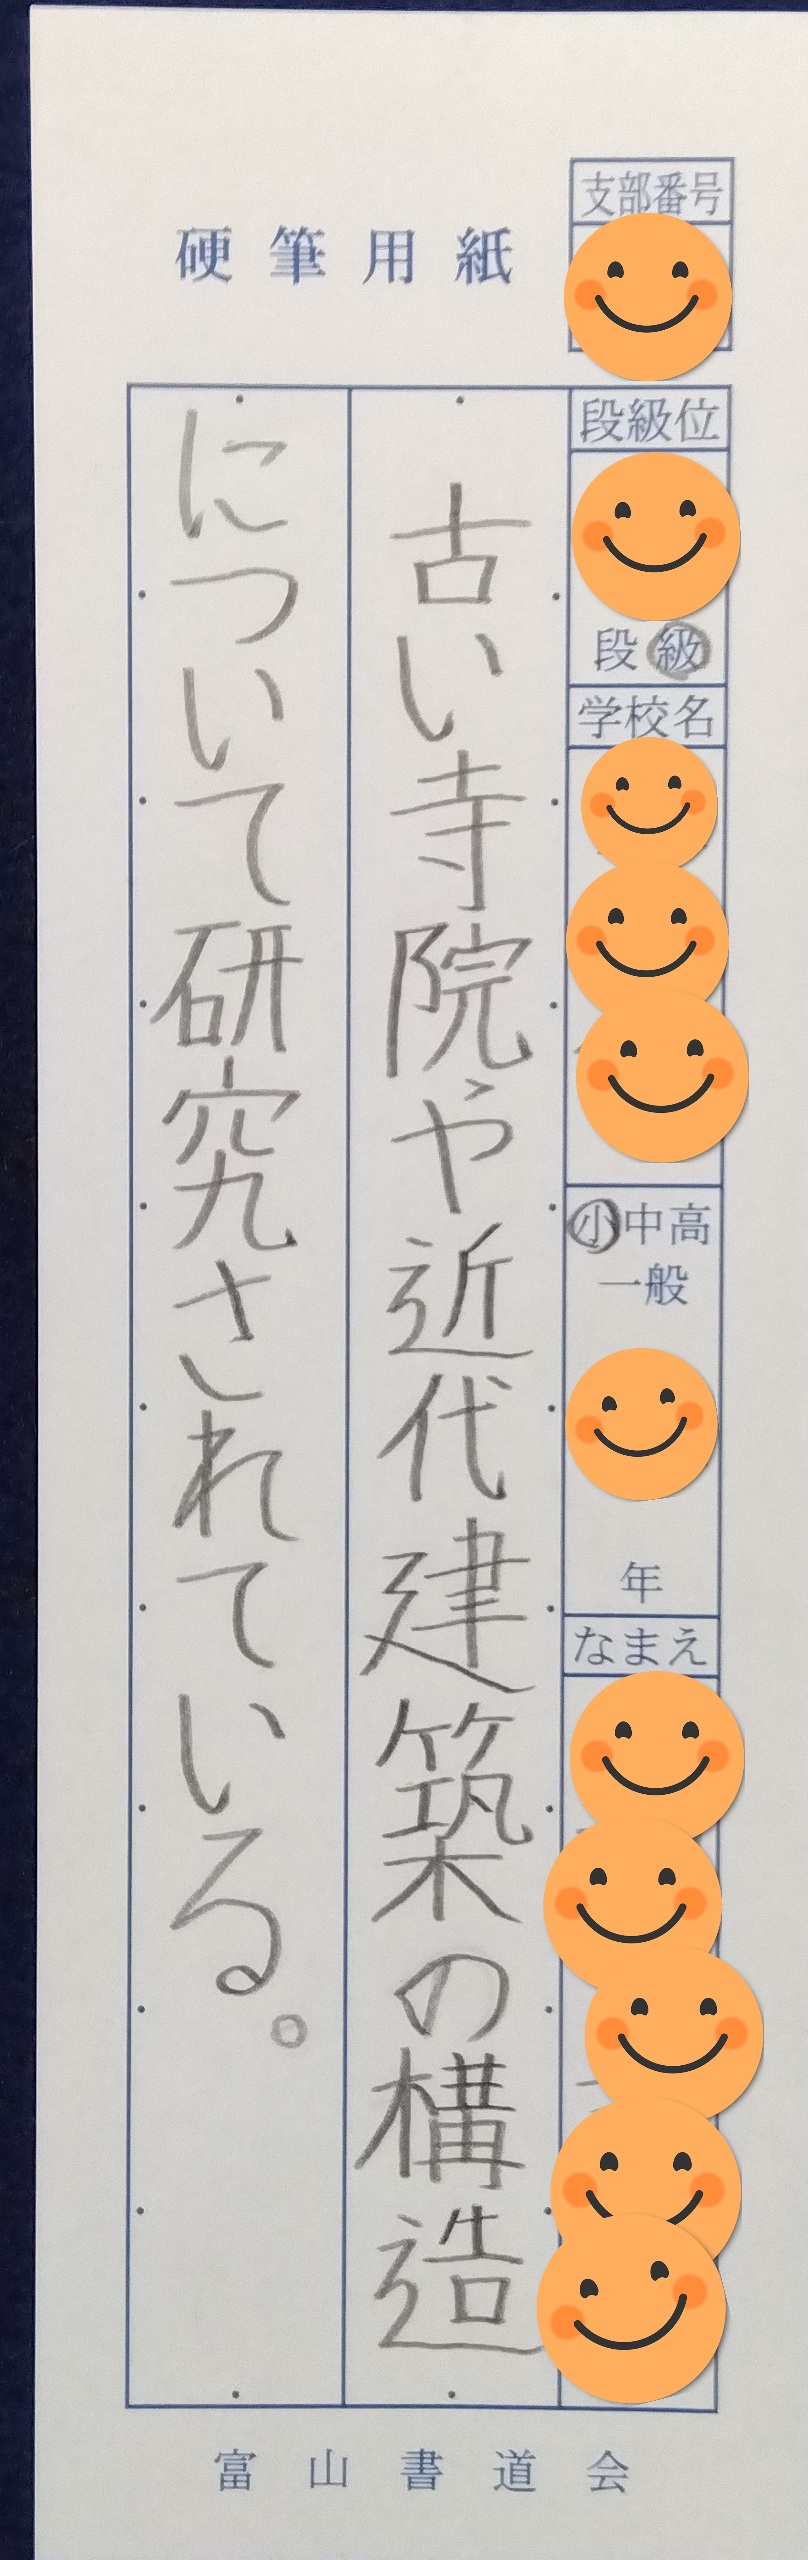 硬筆用紙
支部番号
段級位
段級
学校名
小中高
一般
年
なまえ
古い寺院や近代建築の構造
について研究されている。
富山書道会